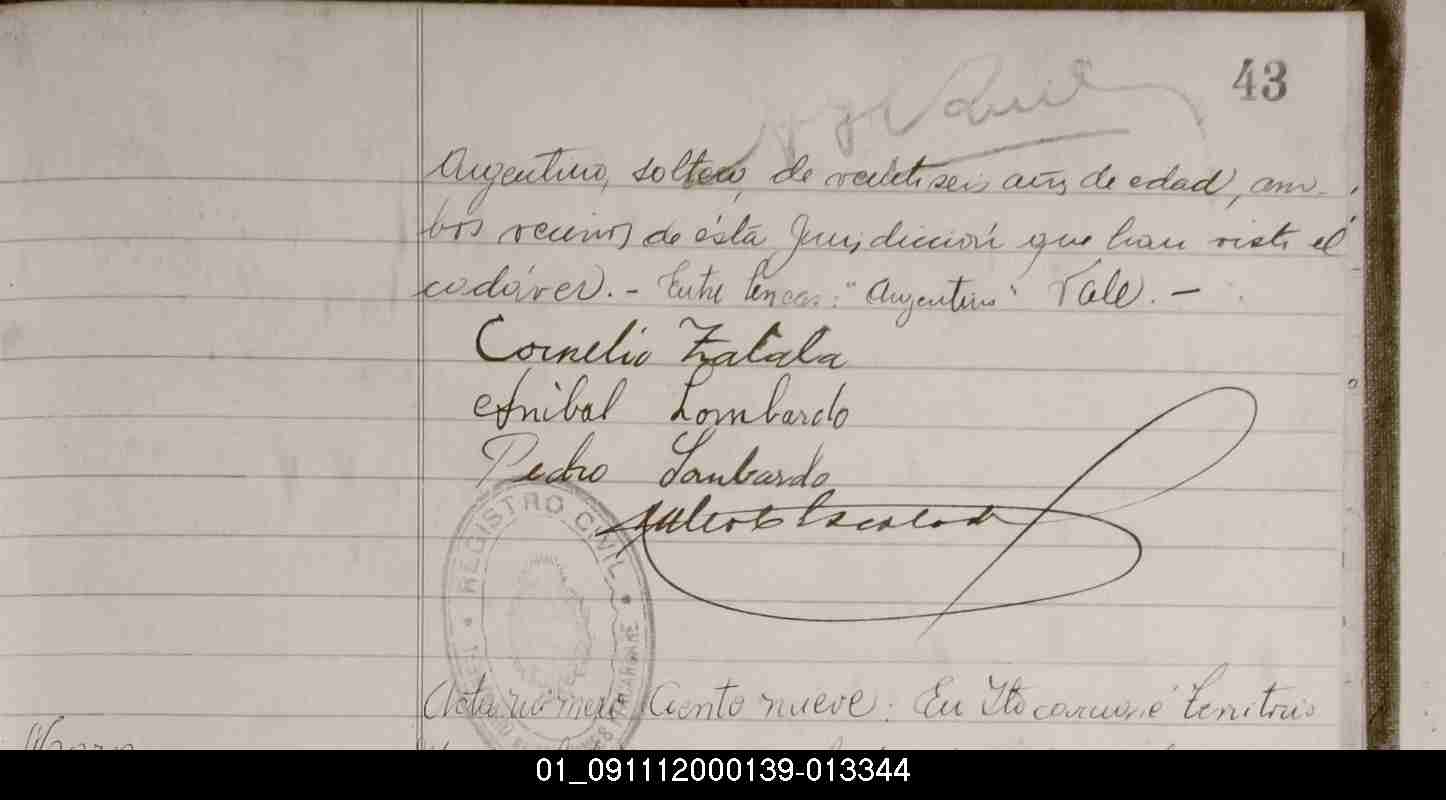 43
Argentino, soltero, de veintiseis años de edad, am-
bos vecinos de ésta Jurisdicción que han visto el
cadáver. - Entre lineas: "Argentino" Vale. -
Cornelio Zabala
Anibal Lombardo
Pedro Lombardo
REGISTRO CIVIL
Acta número Ciento nueve: En Ytacaruaré Territorio
01_091112000139-013344